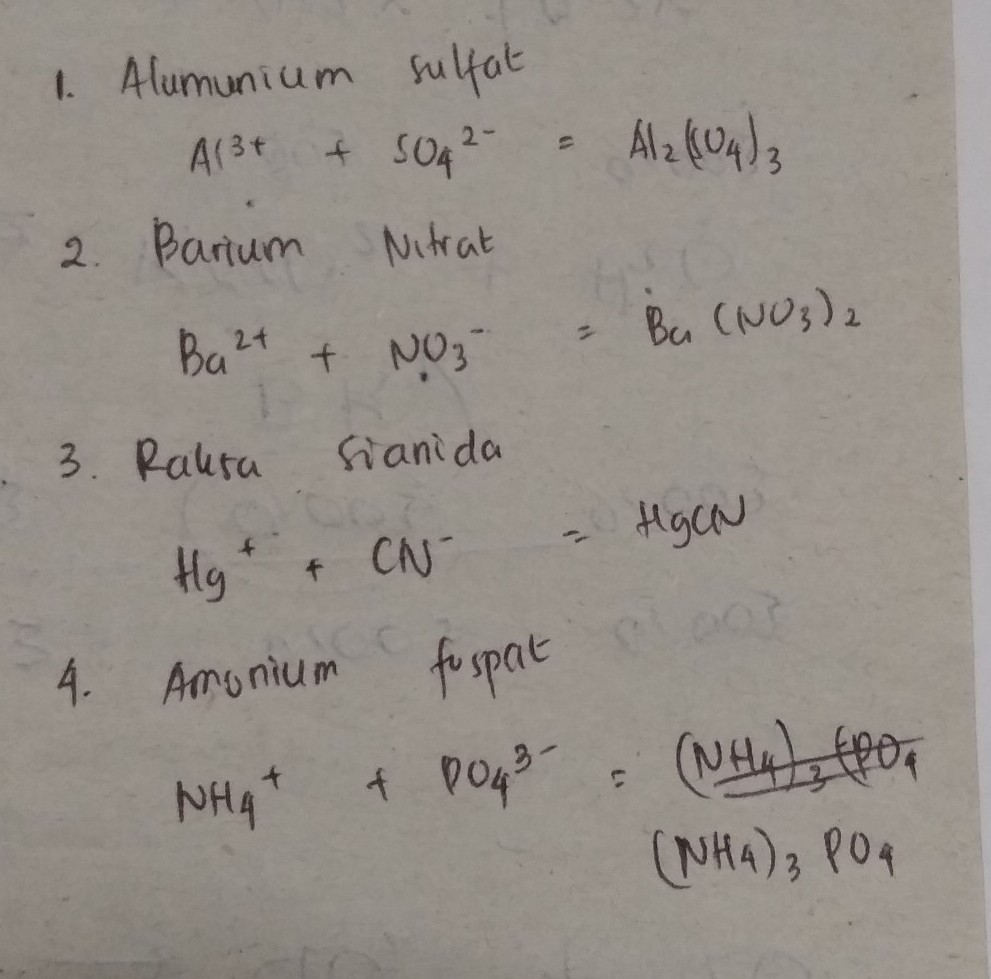 1. Alumunium sulfat
Al3+ + SO4 2- = Al2(SO4)3
2. Barium Nitrat
Ba2+ + NO3- = Ba (NO3)2
3. Raksa sianida
Hg+ + CN- = HgCN
4. Amonium fospat
NH4+ + PO4 3- = (NH4)3 (PO4
(NH4)3 PO4